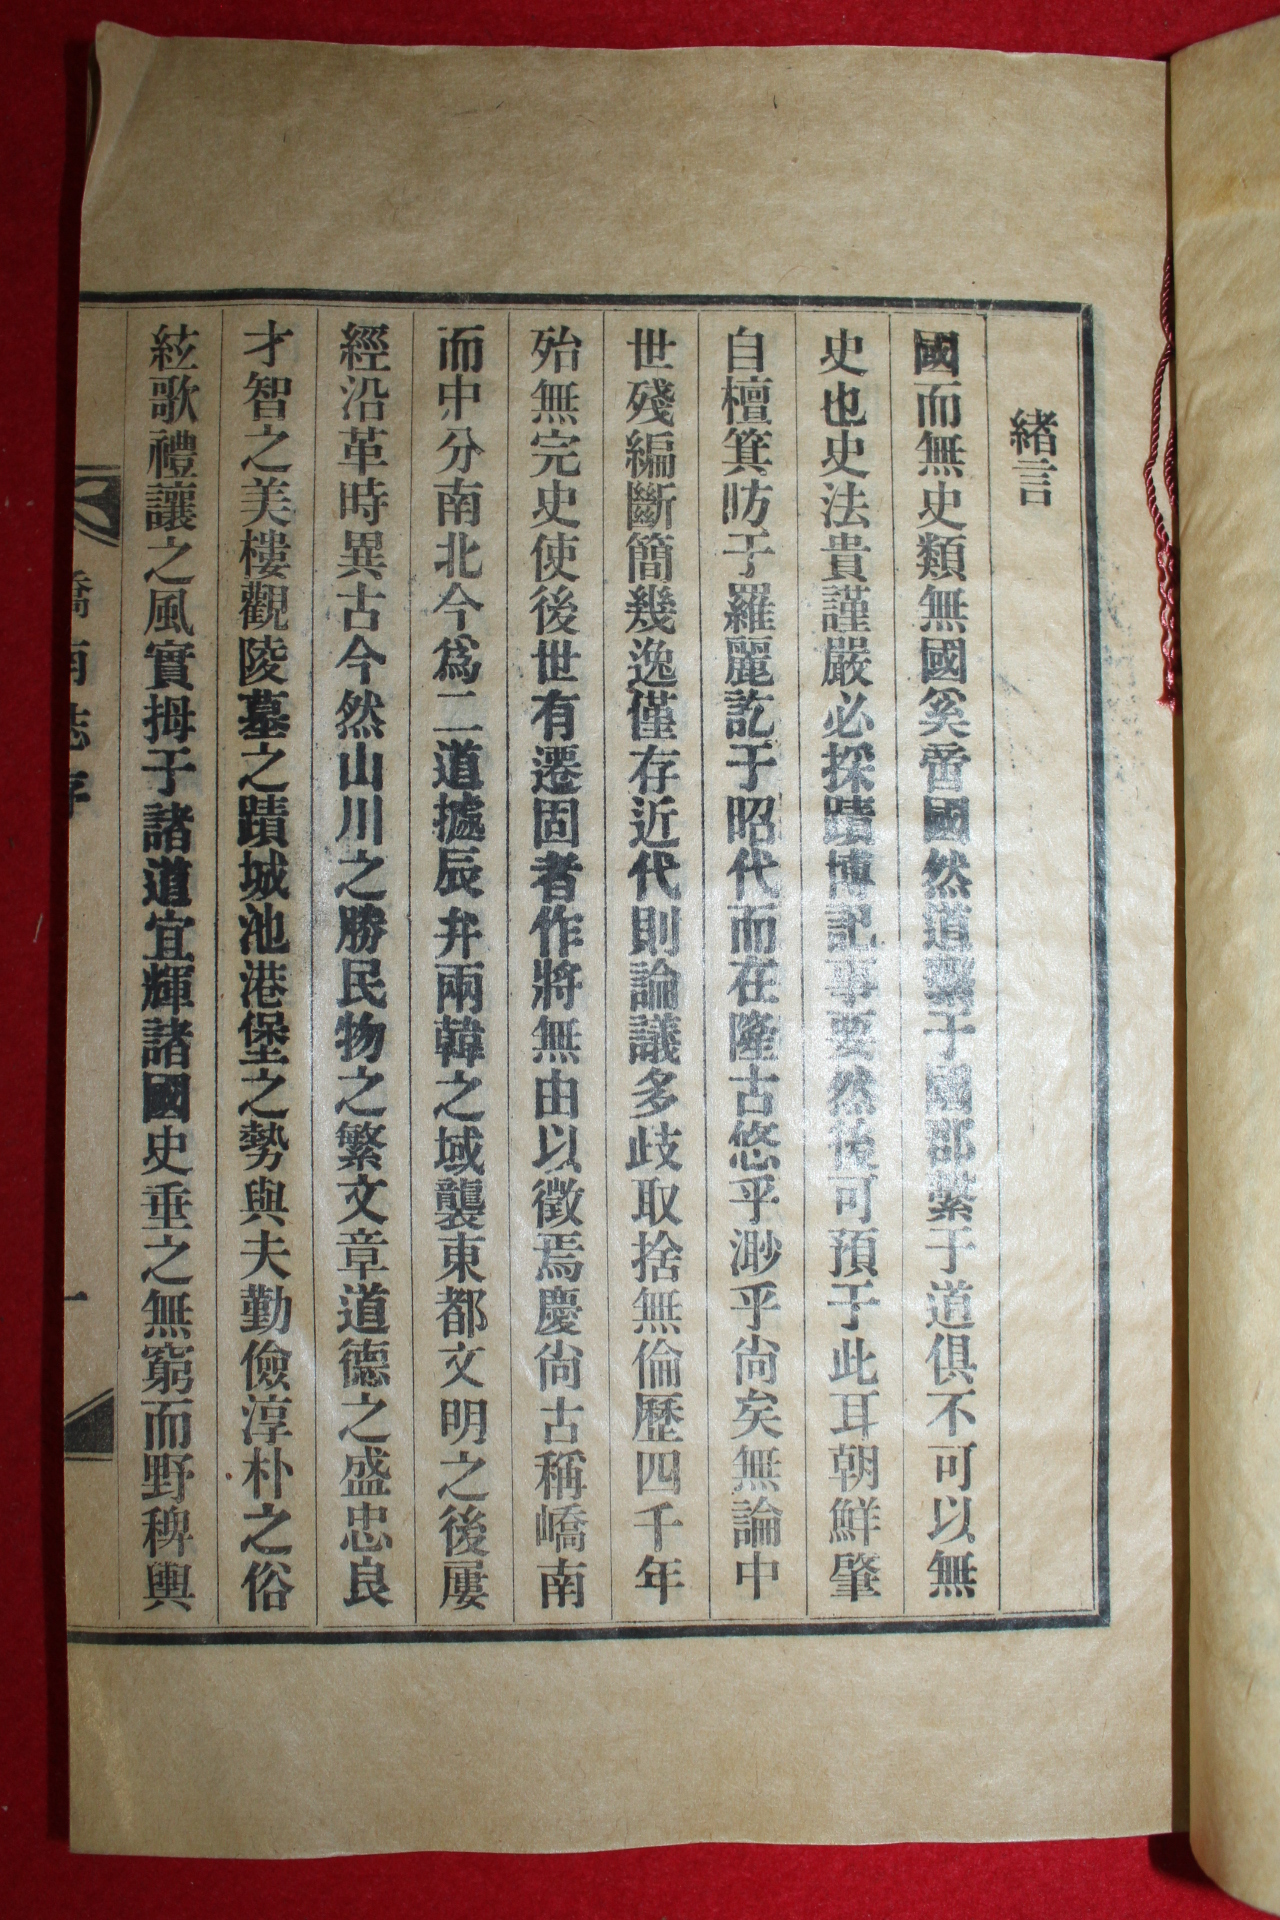 緖言
國而無史類無國奚啻國然道繫于國郡繫于道俱不可以無
史也史法貴謹嚴必採蹟博記事要然後可預于此耳朝鮮肇
自檀箕昉于羅麗訖于昭代而在隆古悠乎渺乎尙矣無論中
世殘編斷簡幾逸僅存近代則論議多歧取捨無倫歷四千年
殆無完史使後世有遷固者作將無由以徵焉慶尙古稱嶠南
而中分南北今爲二道據辰弁兩韓之域襲東都文明之後屢
經沿革時異古今然山川之勝民物之繁文章道德之盛忠良
才智之美樓觀陵墓之蹟城池港堡之勢與夫勤儉淳朴之俗
絃歌禮讓之風實拇于諸道宜輝諸國史垂之無窮而野稗輿
嶠南誌序
一